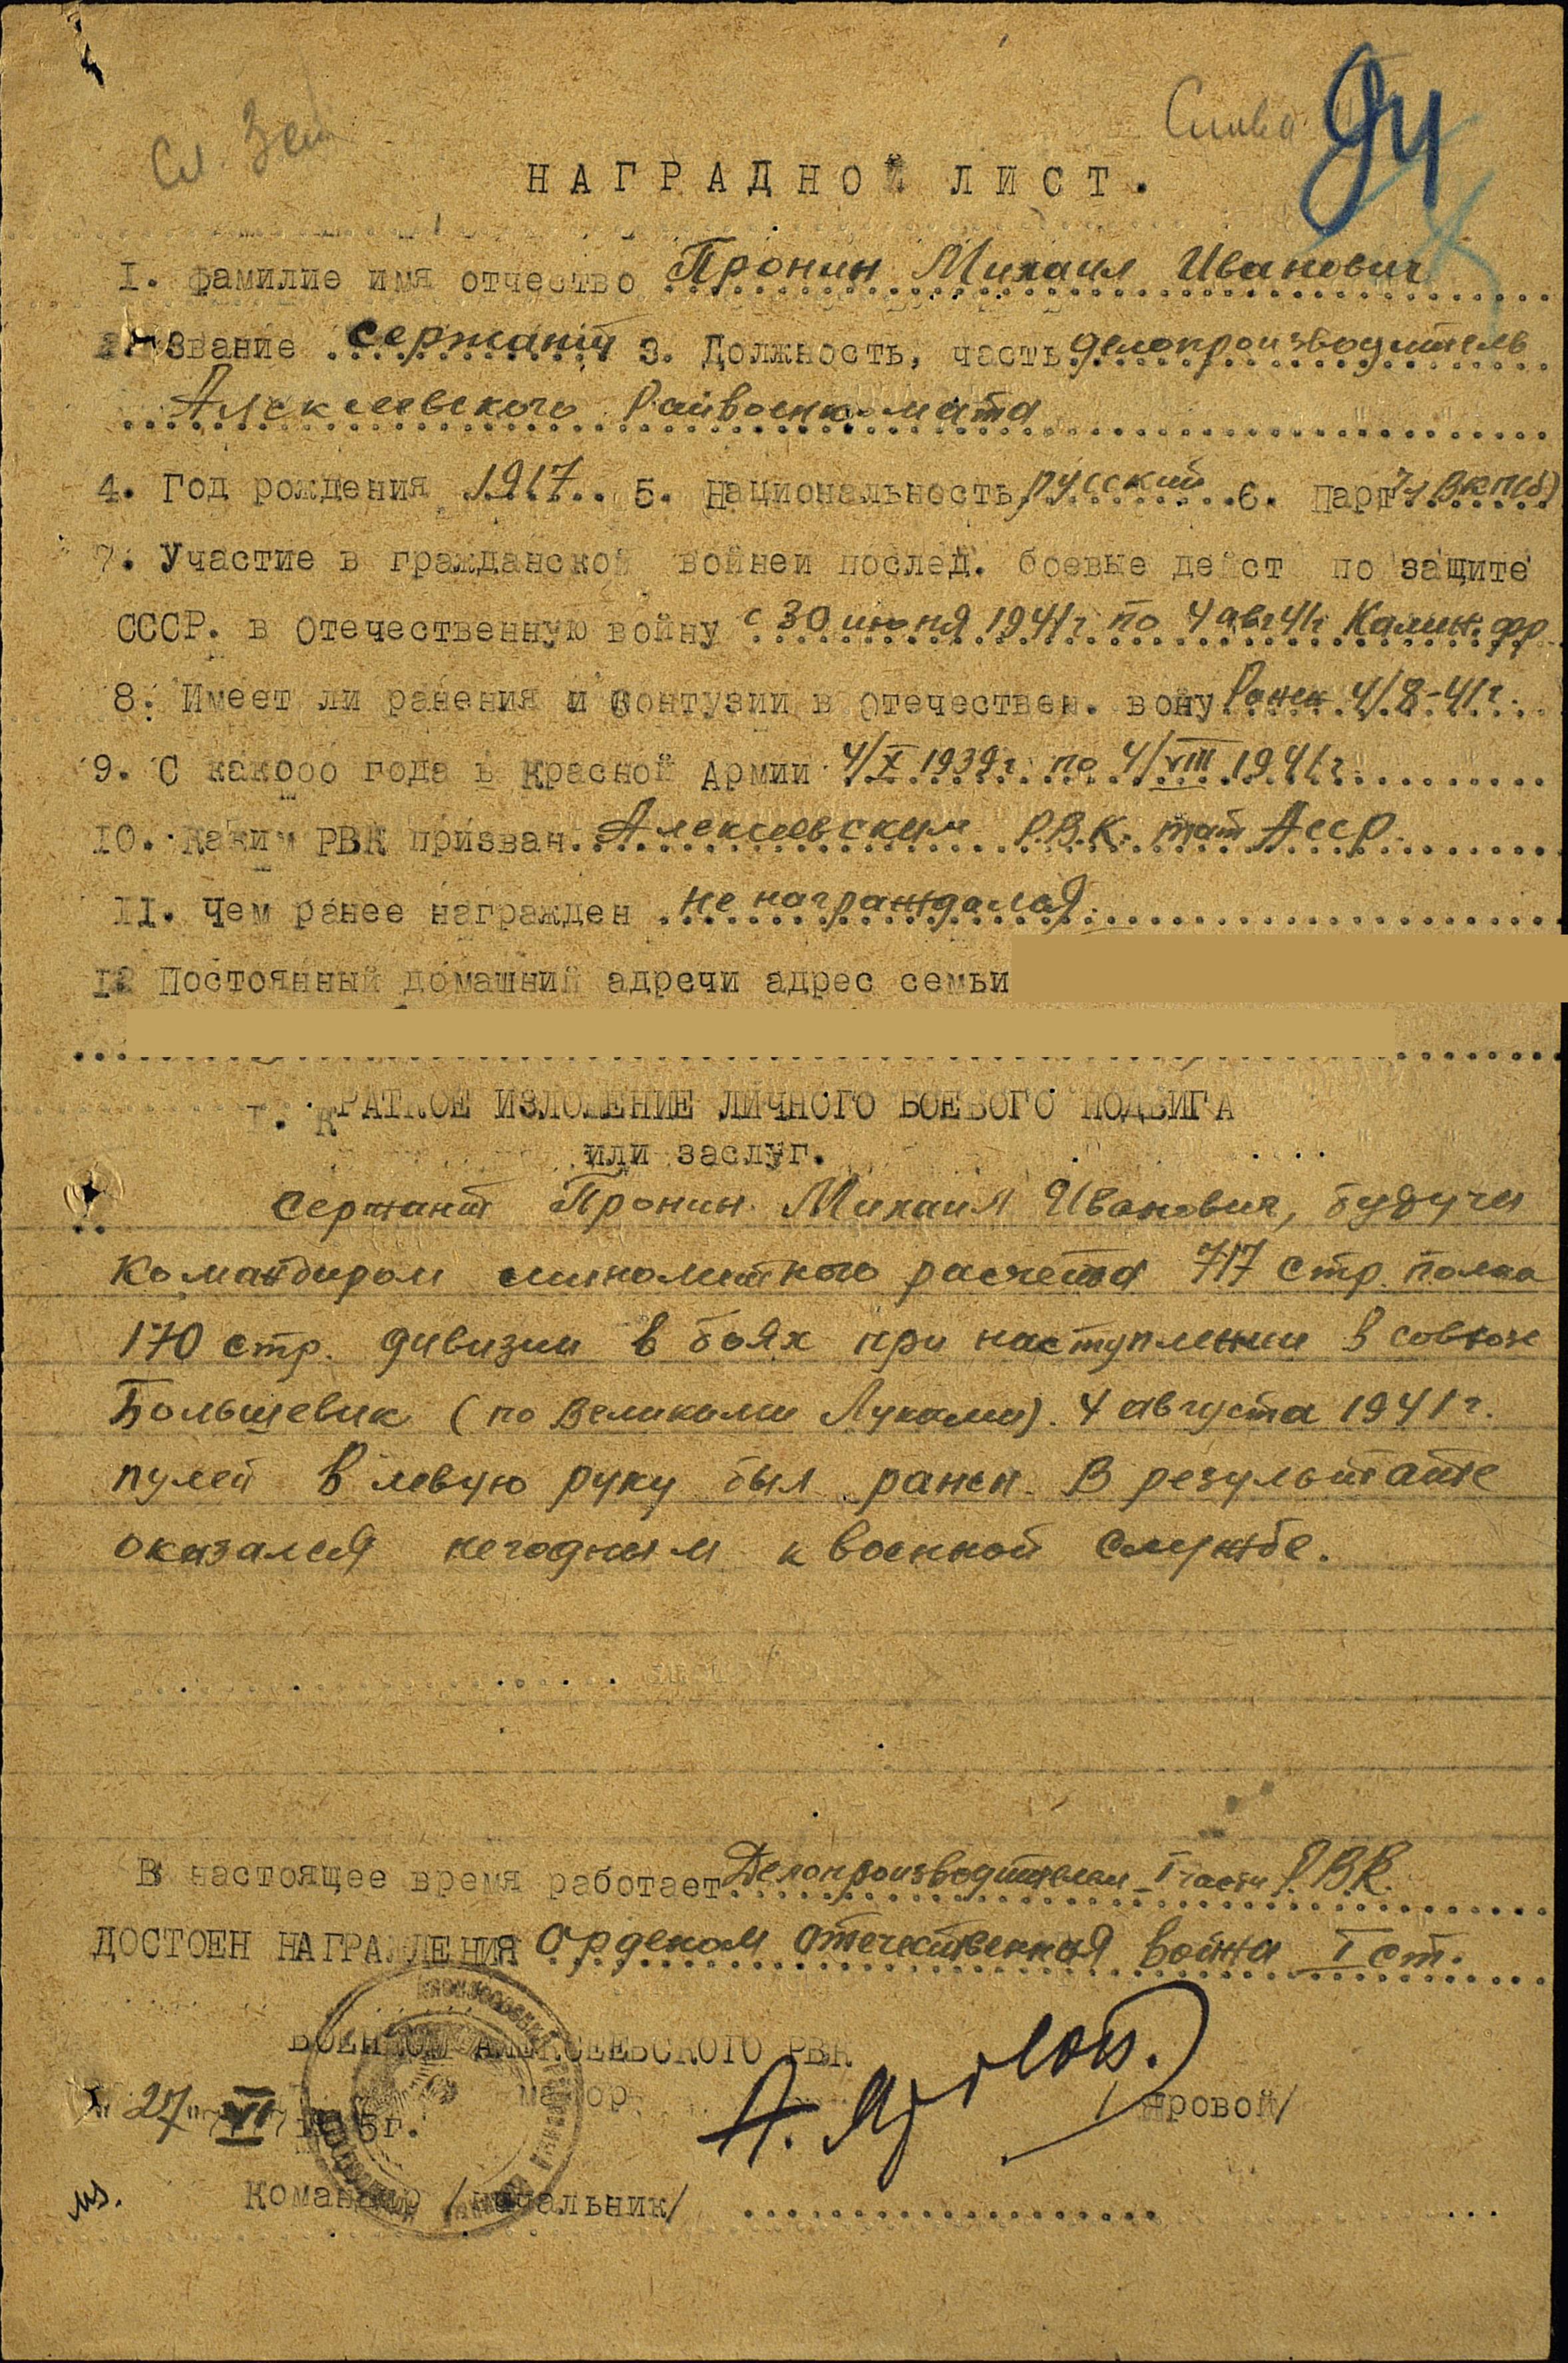 НАГРАДНОЙ ЛИСТ.
I. фамилие имя отчество Пронин Михаил Иванович
Звание сержант 3. Должность, часть делопроизводитель
Алексеевского Райвоенкомата
4. Год рождения 1917 5. Национальность русский 6. Парт ВКП(б)
7. Участие в гражданской войнеи послед. боевые дейст по защите
СССР. в Отечественную войну с 30 июня 1941г по 4 авг 41г Калин. фр
8. Имеет ли ранения и контузии в Отечествен. вону Ранен 4/8-41г.
9. С какооо года в Красной Армии 4/X 1939г. по 4/VIII 1941г.
10. Каким РВК призван Алексеевским Р.В.К. тат Асср.
II. Чем ранее награжден не награждался
12 Постоянный домашний адречи адрес семьи
I. КРАТКОЕ ИЗЛОЖЕНИЕ ЛИЧНОГО БОЕВОГО ПОДВИГА
или заслуг.
Сержант Пронин Михаил Иванович, будучи
командиром минометного расчета 717 стр. полка
170 стр. дивизии в боях при наступлении в совхозе
Большевик (по Великами Луками). 4 августа 1941г.
пулей в левую руку был ранен. В результате
оказался негодным к военной службе.
В настоящее время работает Делопроизводителем I части Р.В.К.
ДОСТОЕН НАГРАЖДЕНИЯ Орденом Отечественная война I ст.
ВОЕНКОМ АЛЕКСЕЕВСКОГО РВК
майор А. Яровой. /Яровой/
"27" VI 1945г.
Командир /начальник/